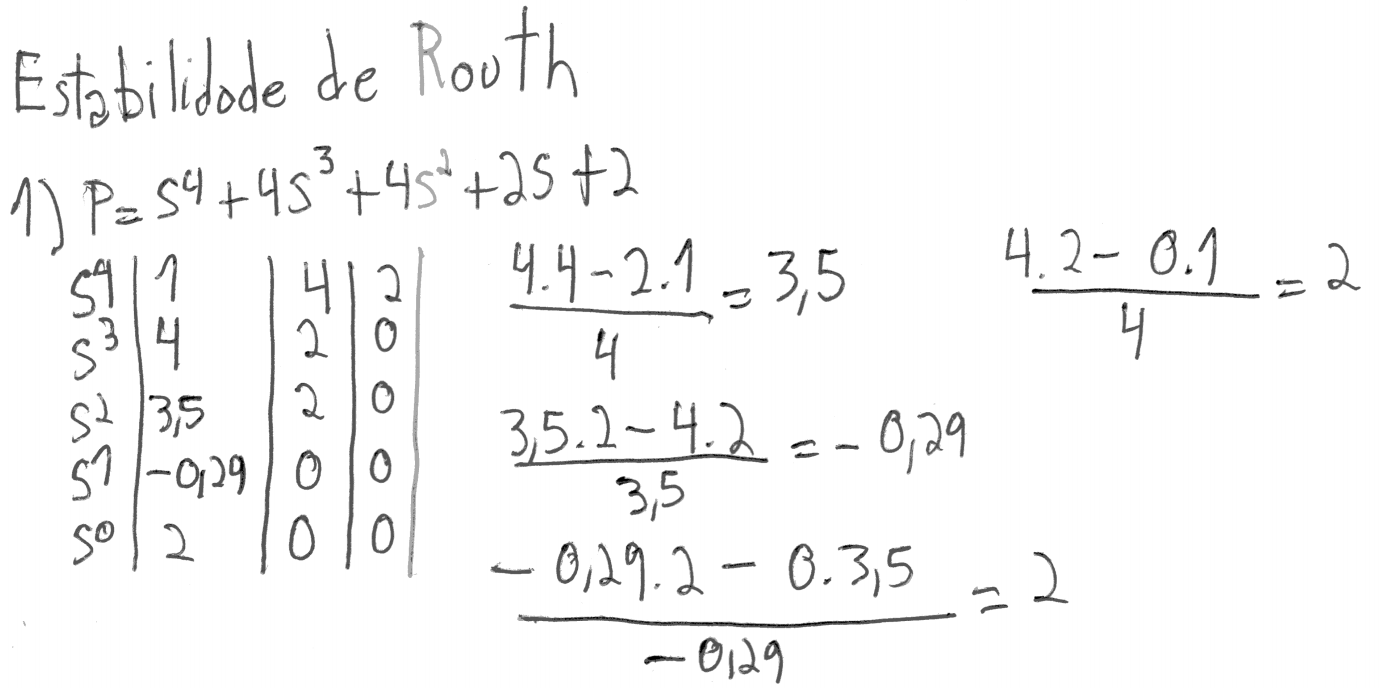 Estabilidade de Routh
1) P= S⁴+4S³+4S²+2S+2
S⁴ | 1 | 4 | 2 |
S³ | 4 | 2 | 0 |
S² | 3,5 | 2 | 0 |
S¹ | -0,29 | 0 | 0 |
S⁰ | 2 | 0 | 0 |
4.4-2.1
4
= 3,5
4.2- 0.1
4
= 2
3,5.2-4.2
3,5
=- 0,29
- 0,29.2 - 0.3,5
-0,29
= 2